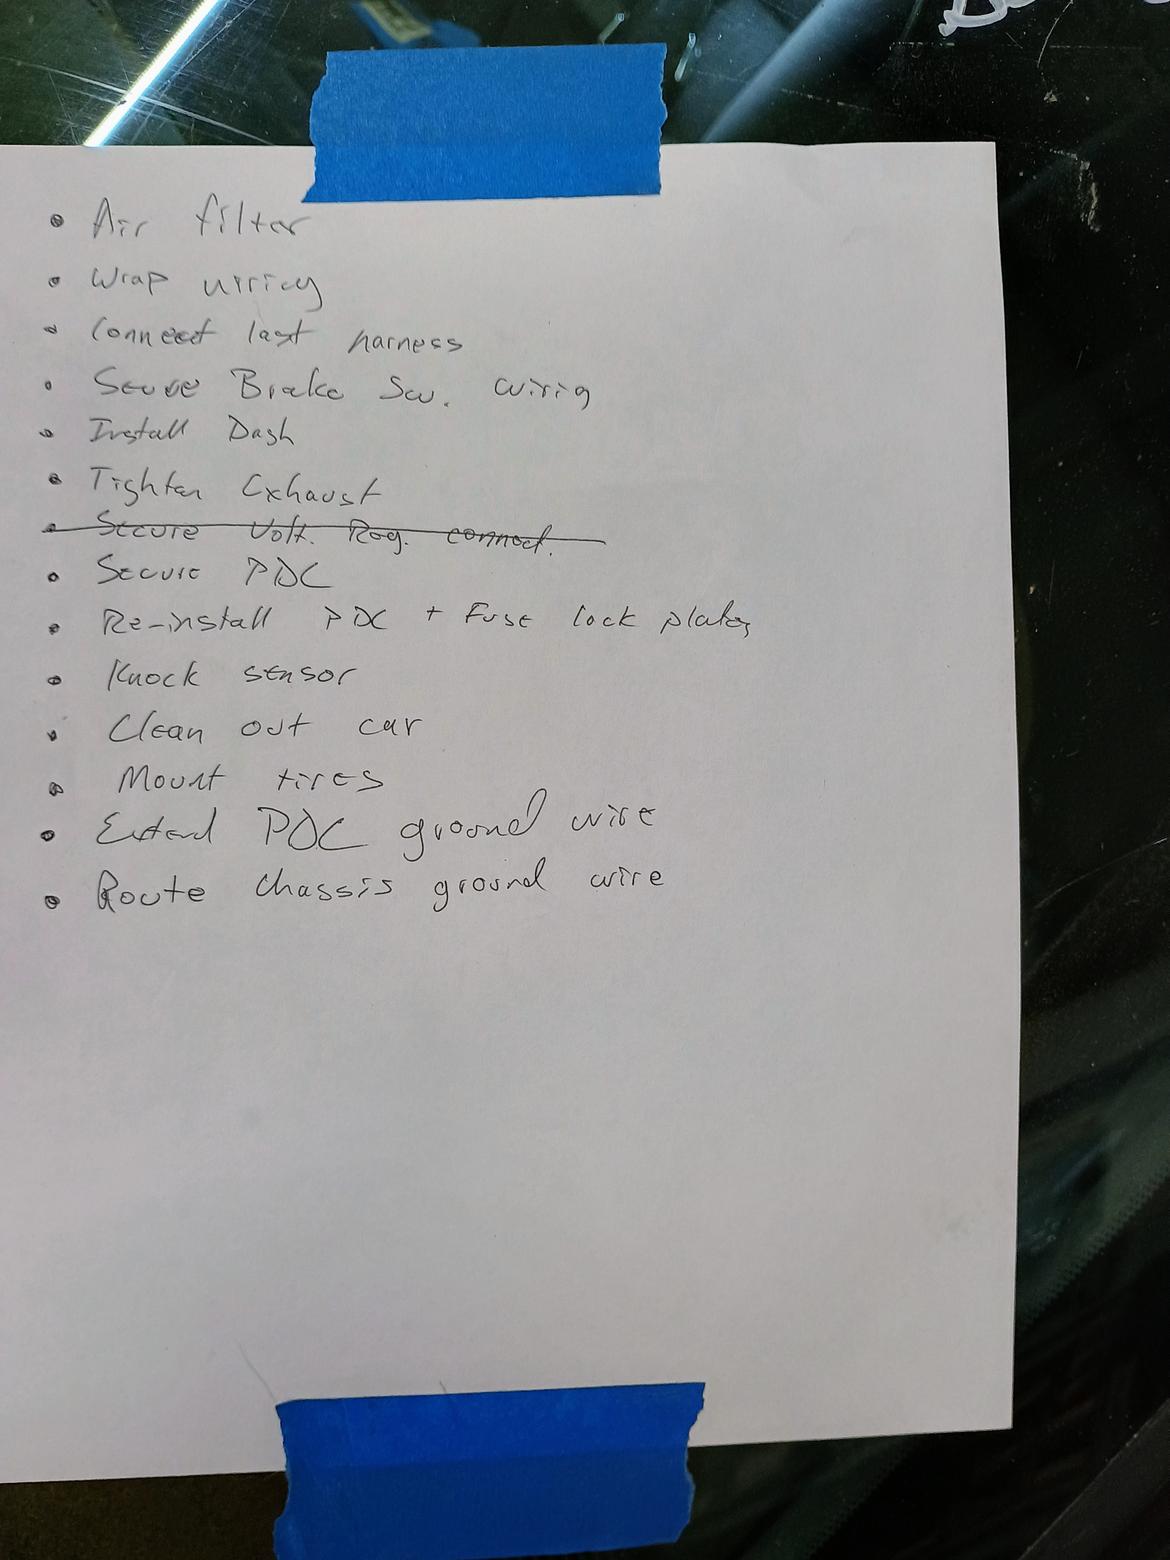 • Air filter
• Wrap wiring
• Connect last harness
• Secure Brake Sw. wirig
• Install Dash
• Tighten Exhaust
• Secure Volt. Reg. connect.
• Secure PDC
• Re-install PDC + Fuse lock plates
• Knock sensor
• Clean out car
• Mount tires
• Extend PDC ground wire
• Route chassis ground wire